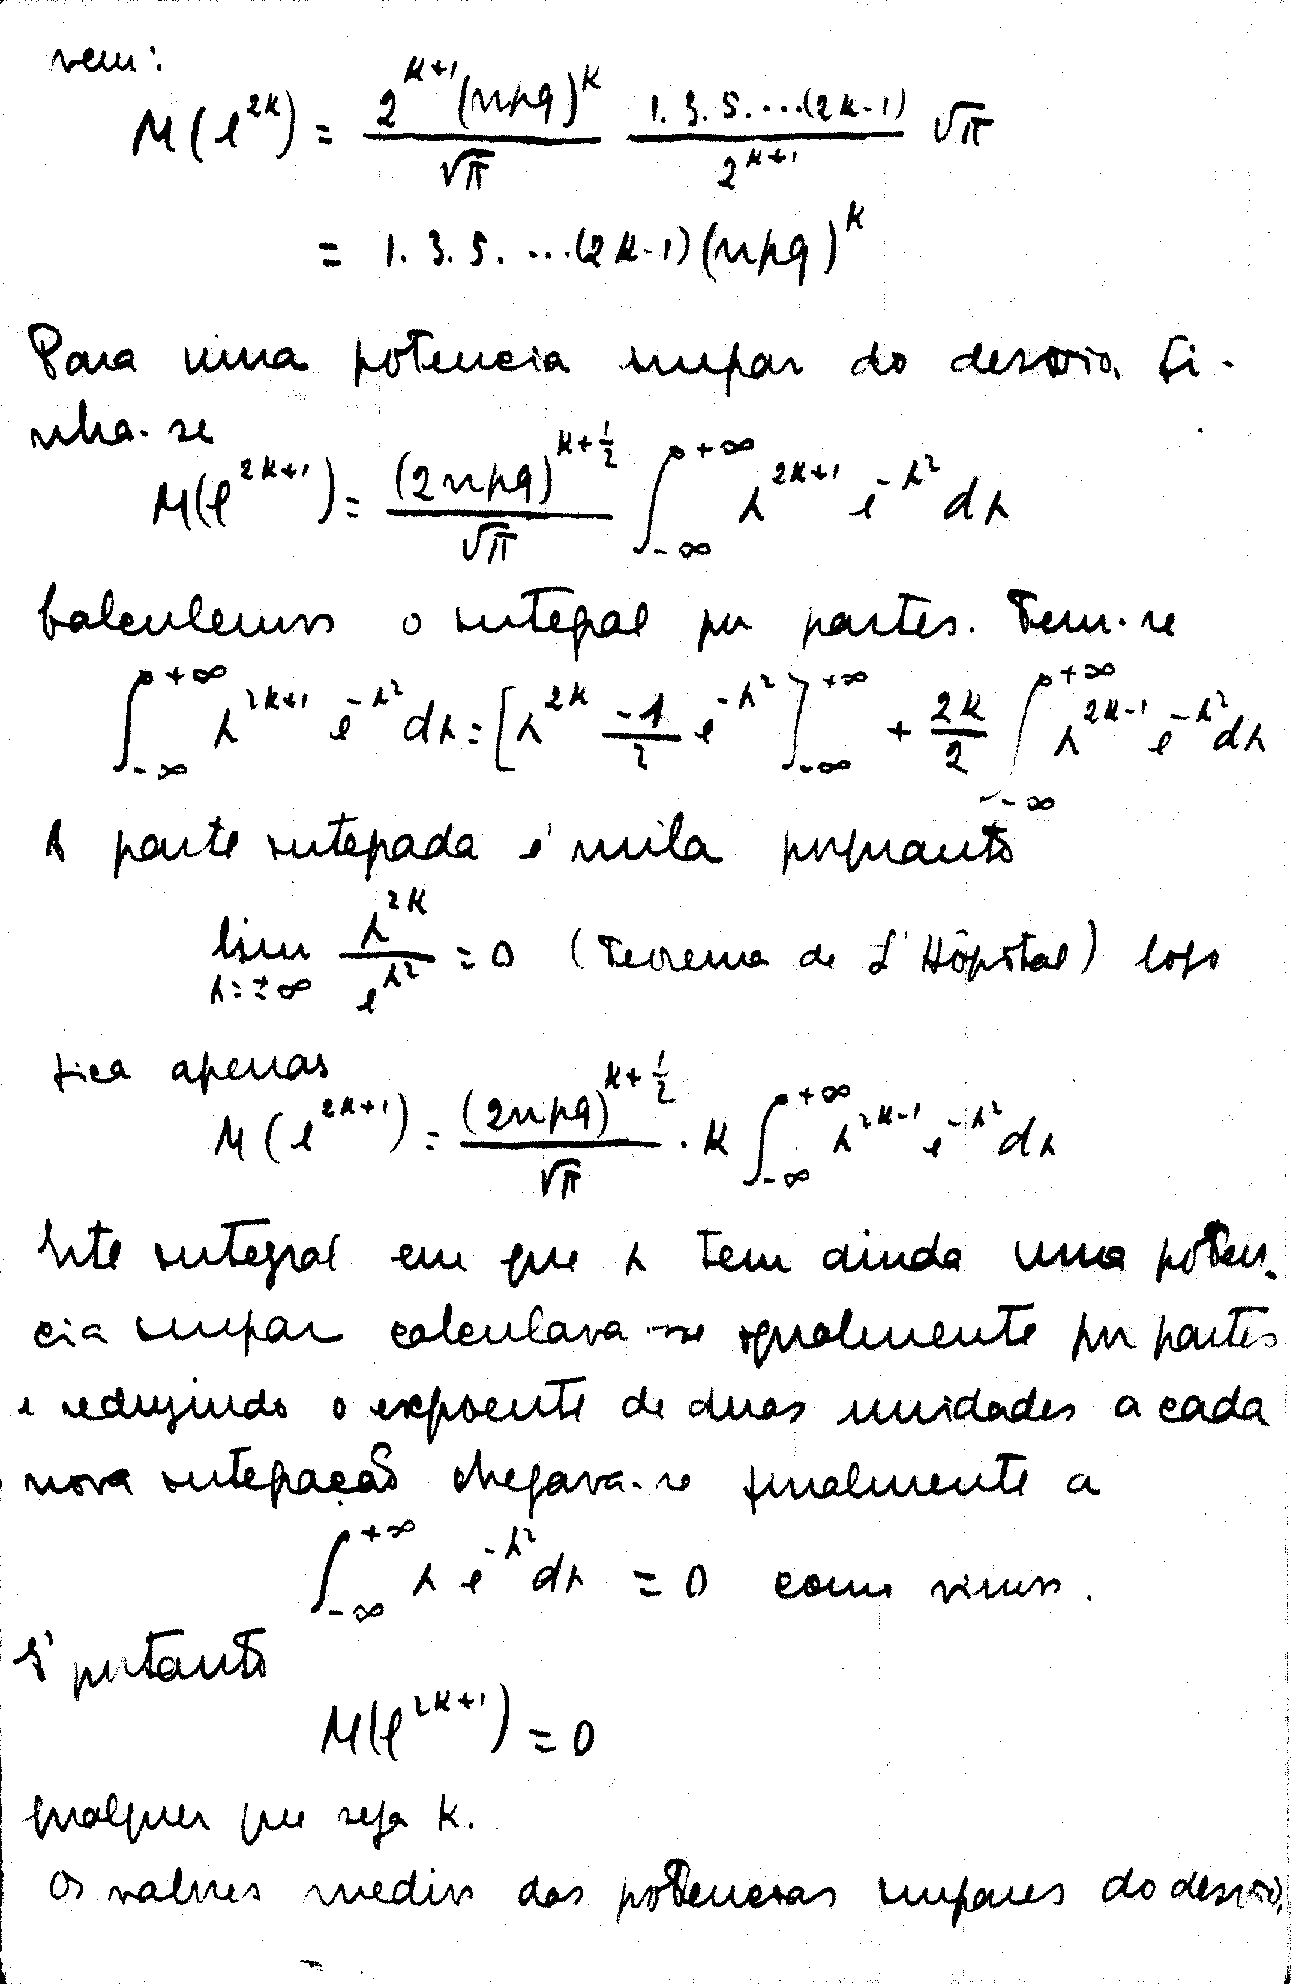 vem:
M(l^{2k}) = \frac{2^{k+1}(npq)^k}{\sqrt{\pi}} \frac{1.3.5.\cdots(2k-1)}{2^{k+1}} \sqrt{\pi}
= 1.3.5.\cdots(2k-1)(npq)^k
Para uma potencia impar do desvio, ti-
nha-se
M(l^{2k+1}) = \frac{(2npq)^{k+\frac{1}{2}}}{\sqrt{\pi}} \int_{-\infty}^{+\infty} λ^{2k+1} e^{-λ^2} dλ
Calculemos o integral por partes. Tem-se
\int_{-\infty}^{+\infty} λ^{2k+1} e^{-λ^2} dλ = [λ^{2k} \frac{-1}{2} e^{-λ^2}]_{-\infty}^{+\infty} + \frac{2k}{2} \int_{-\infty}^{+\infty} λ^{2k-1} e^{-λ^2} dλ
A parte integrada é nula porquanto
\lim_{λ=±\infty} \frac{λ^{2k}}{e^{λ^2}} = 0 (Teorema de L'Hôpital) logo
fica apenas
M(l^{2k+1}) = \frac{(2npq)^{k+\frac{1}{2}}}{\sqrt{\pi}} . k \int_{-\infty}^{+\infty} λ^{2k-1} e^{-λ^2} dλ
Este integral em que λ tem ainda uma poten-
cia impar calculava-se igualmente por partes
e reduzindo o expoente de duas unidades a cada
nova integração chegava-se finalmente a
\int_{-\infty}^{+\infty} λ e^{-λ^2} dλ = 0 como vimos.
É portanto
M(l^{2k+1}) = 0
qualquer que seja k.
Os valores medios das potencias impares do desvio,